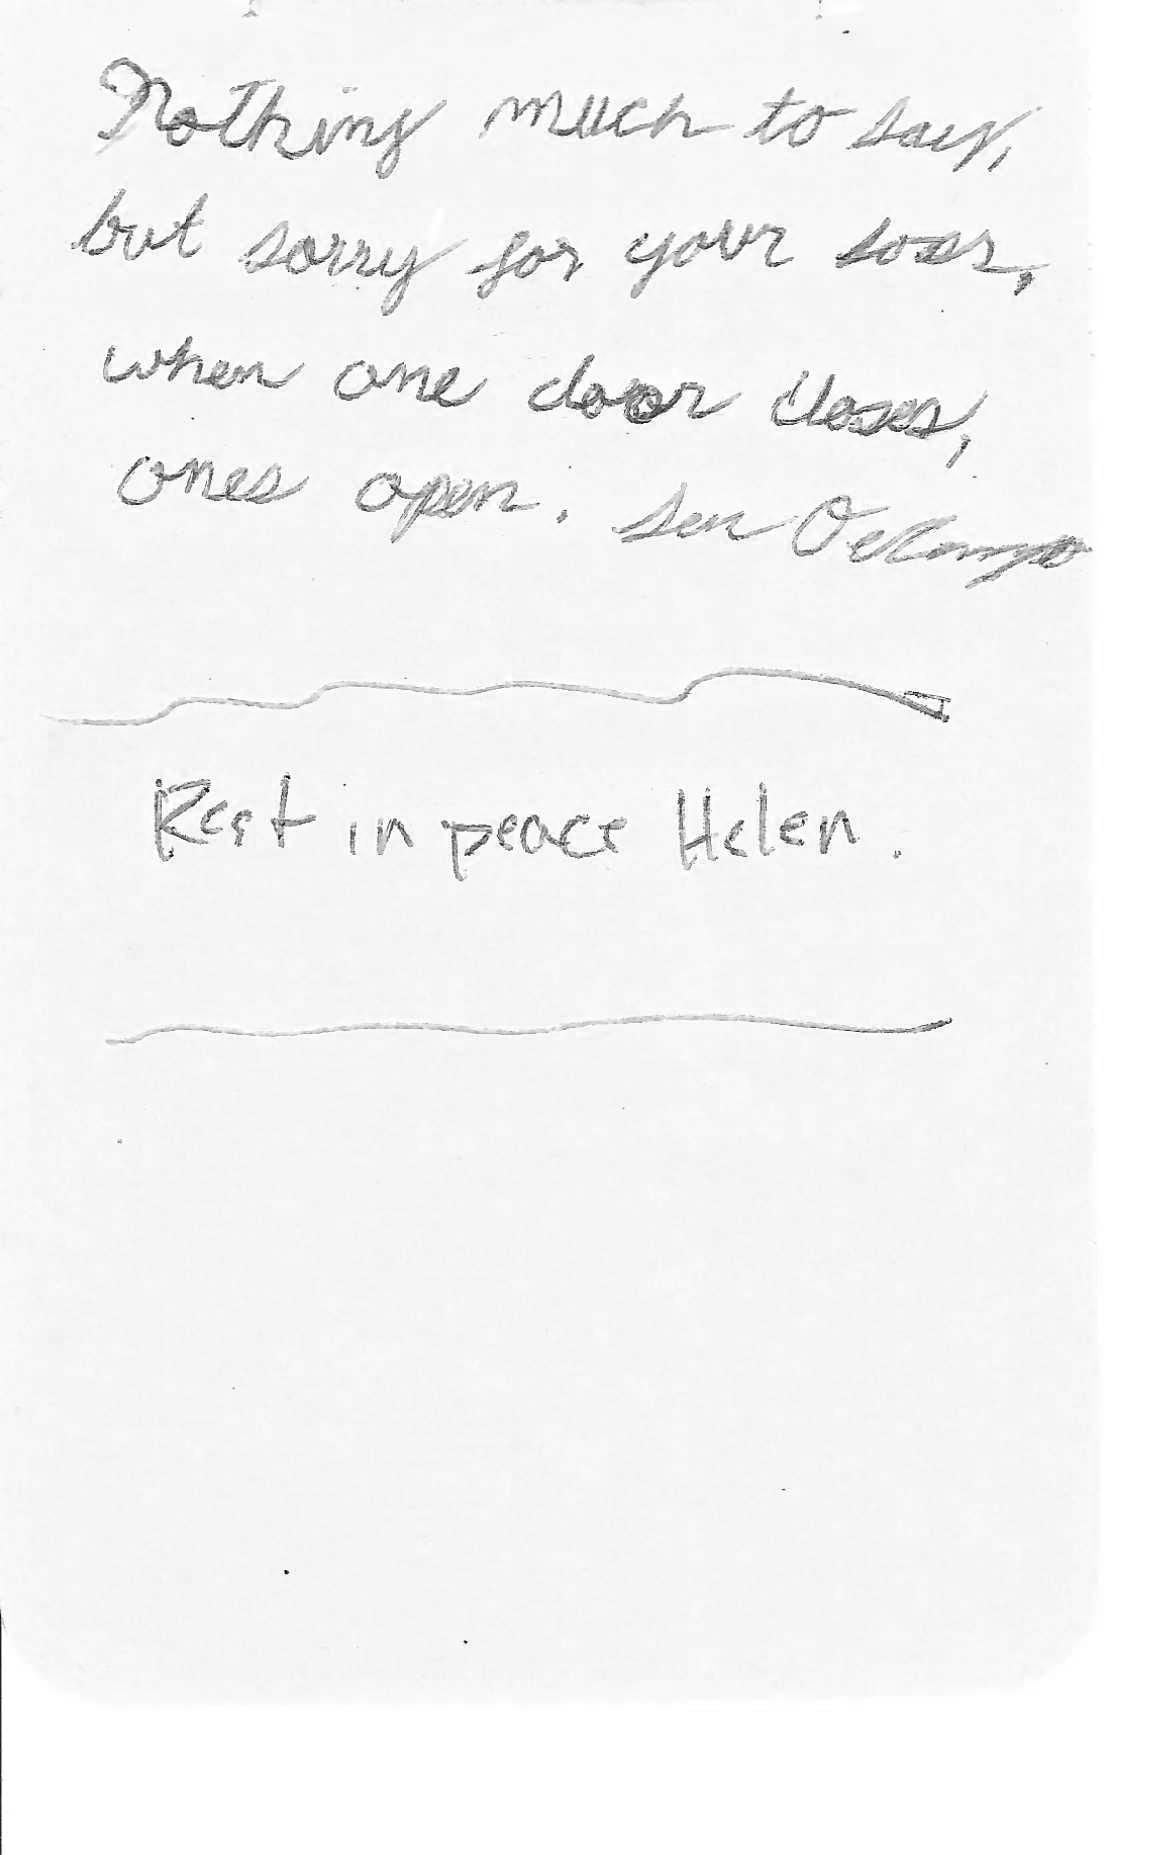 Nothing much to say,
but sorry for your loss,
when one door closes,
ones open.
Rest in peace Helen.